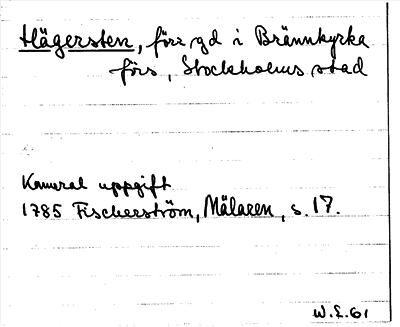 Hägersten, förr gd i Brännkyrka
förs, Stockholms stad
Kameral uppgift
1785 Fischerström, Mälaren, s. 17.
W.L. 61